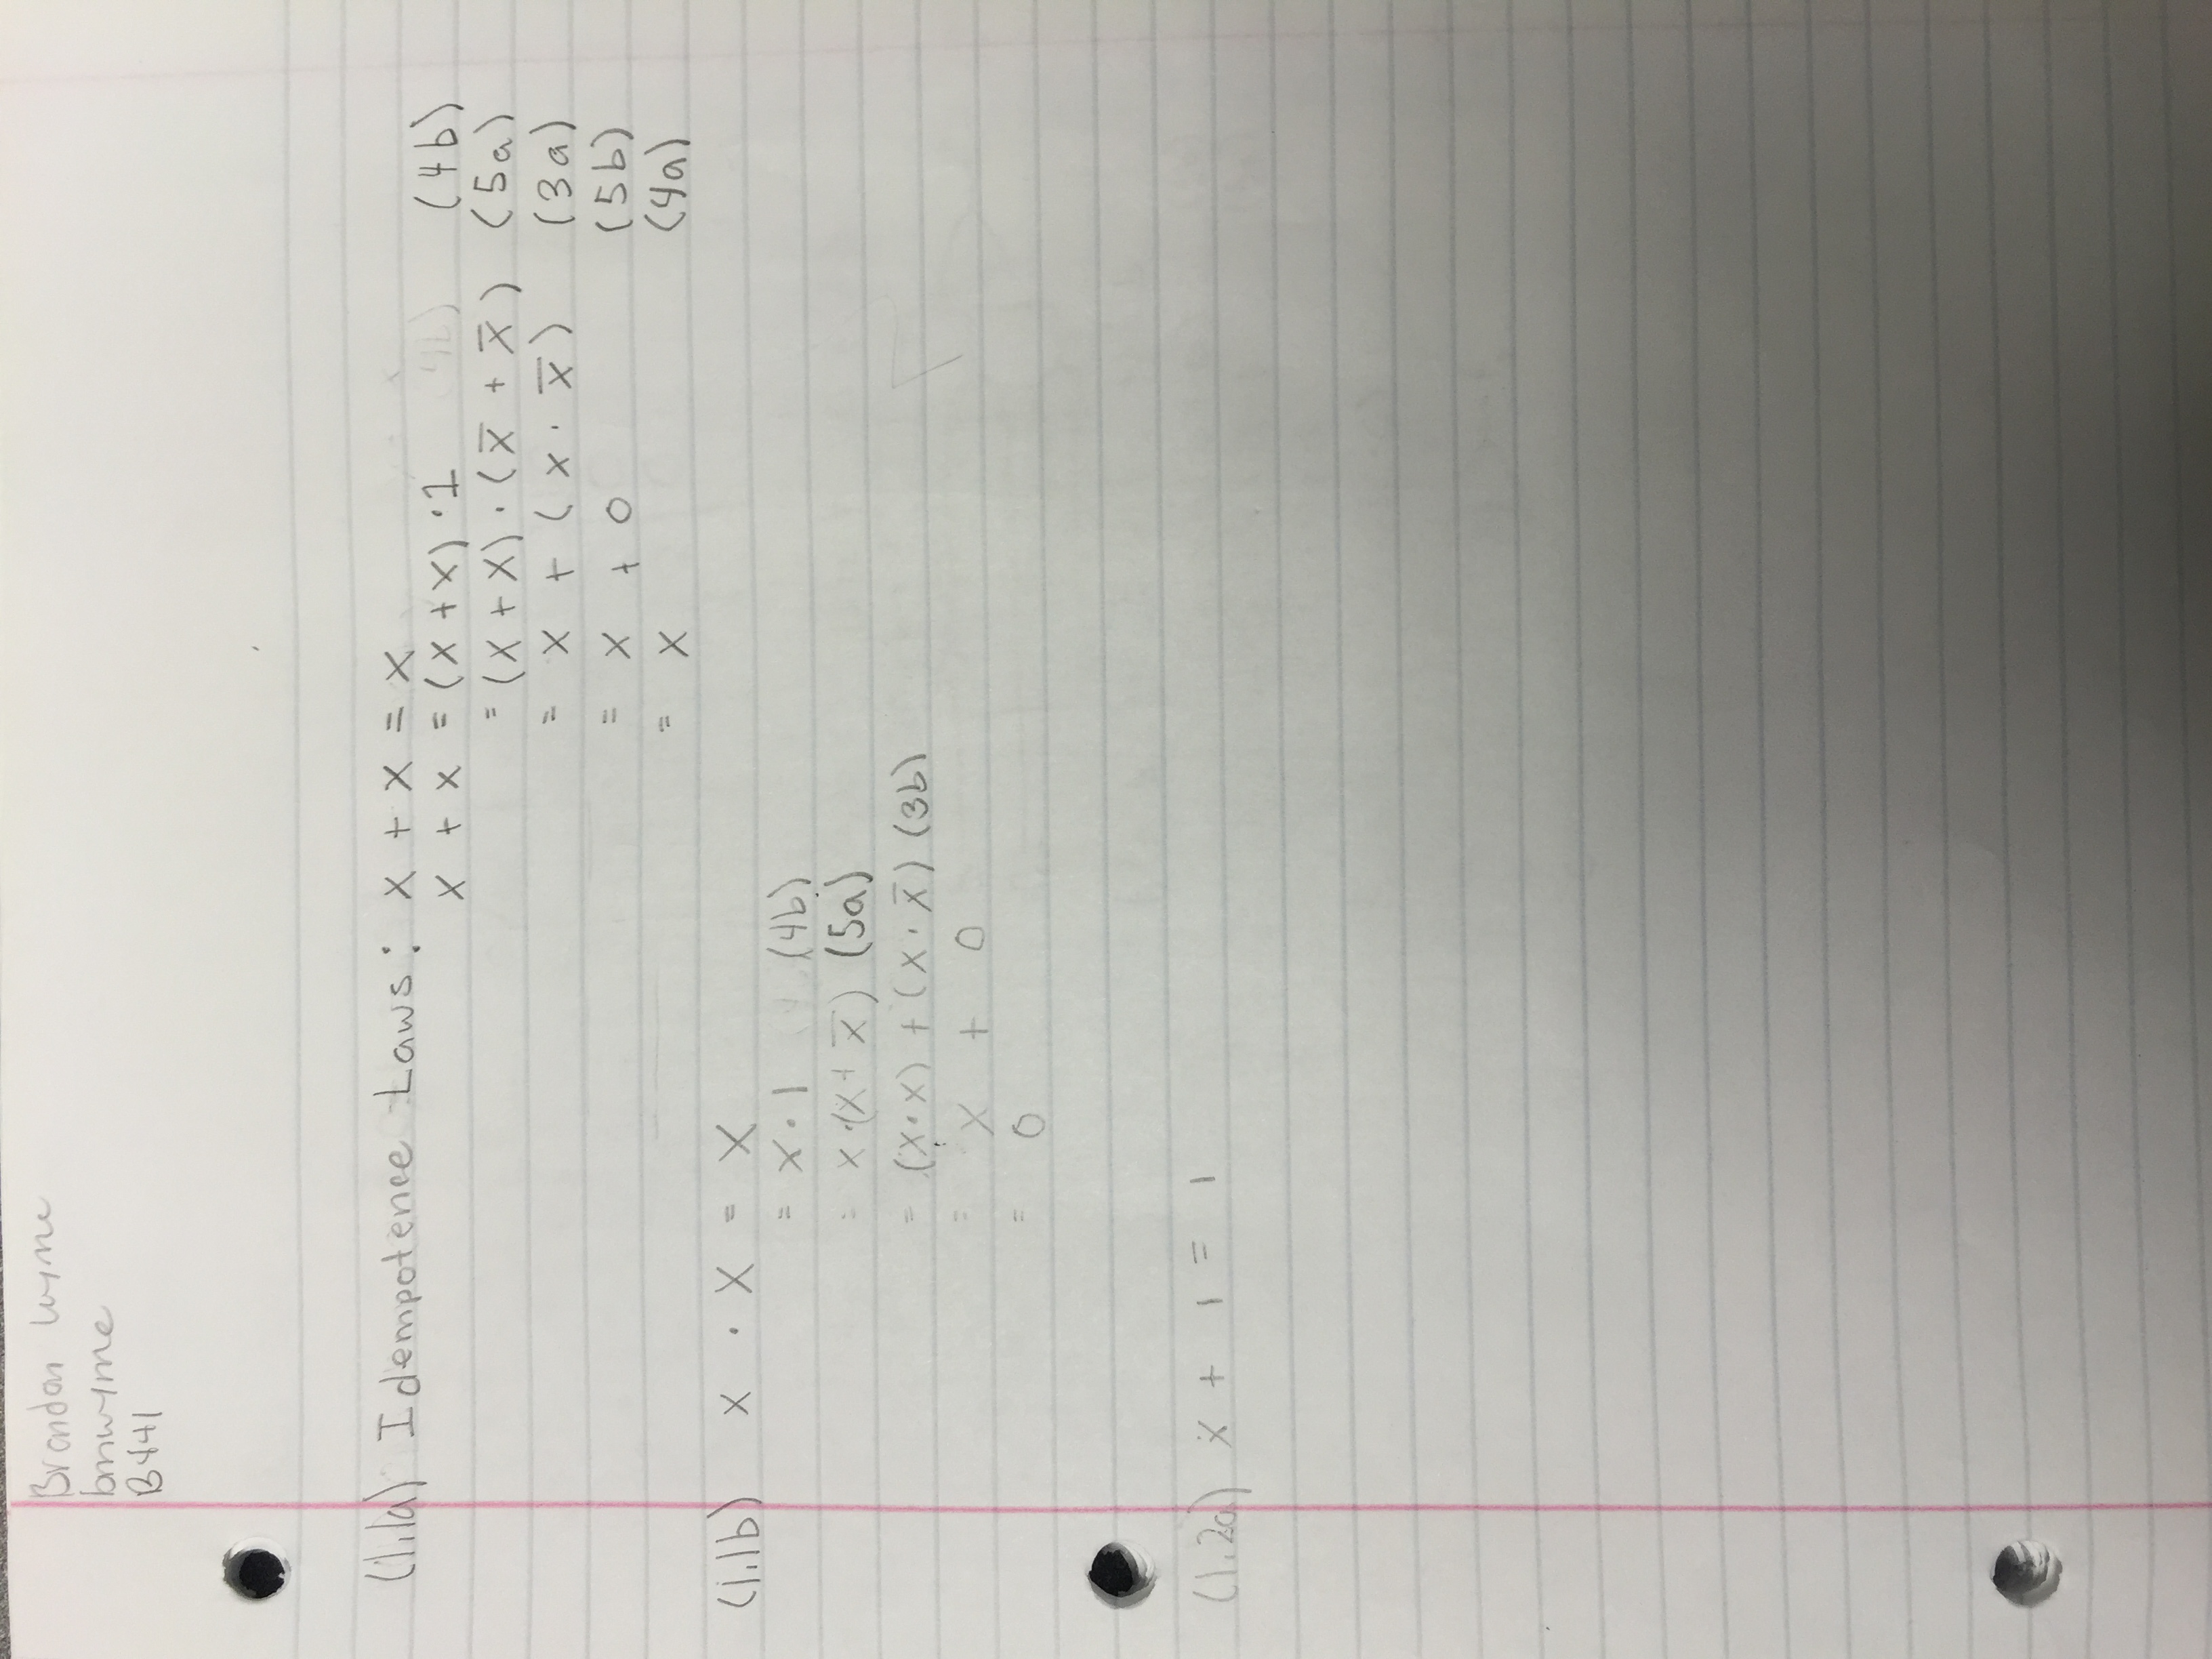 Brandon Wyne
bmwyme
B441
(1.1a) Idempotence Laws: x + x = x
x + x = (x + x) · 1 (4b)
= (x + x) · (x̅ + x̅) (5a)
= x + (x · x̅) (3a)
= x + 0 (5b)
= x (4a)
(1.1b) x · x = x
= x · 1 (4b)
= x · (x + x̅) (5a)
= (x · x) + (x · x̅) (3b)
= x + 0
= 0
(1.2a) x + 1 = 1